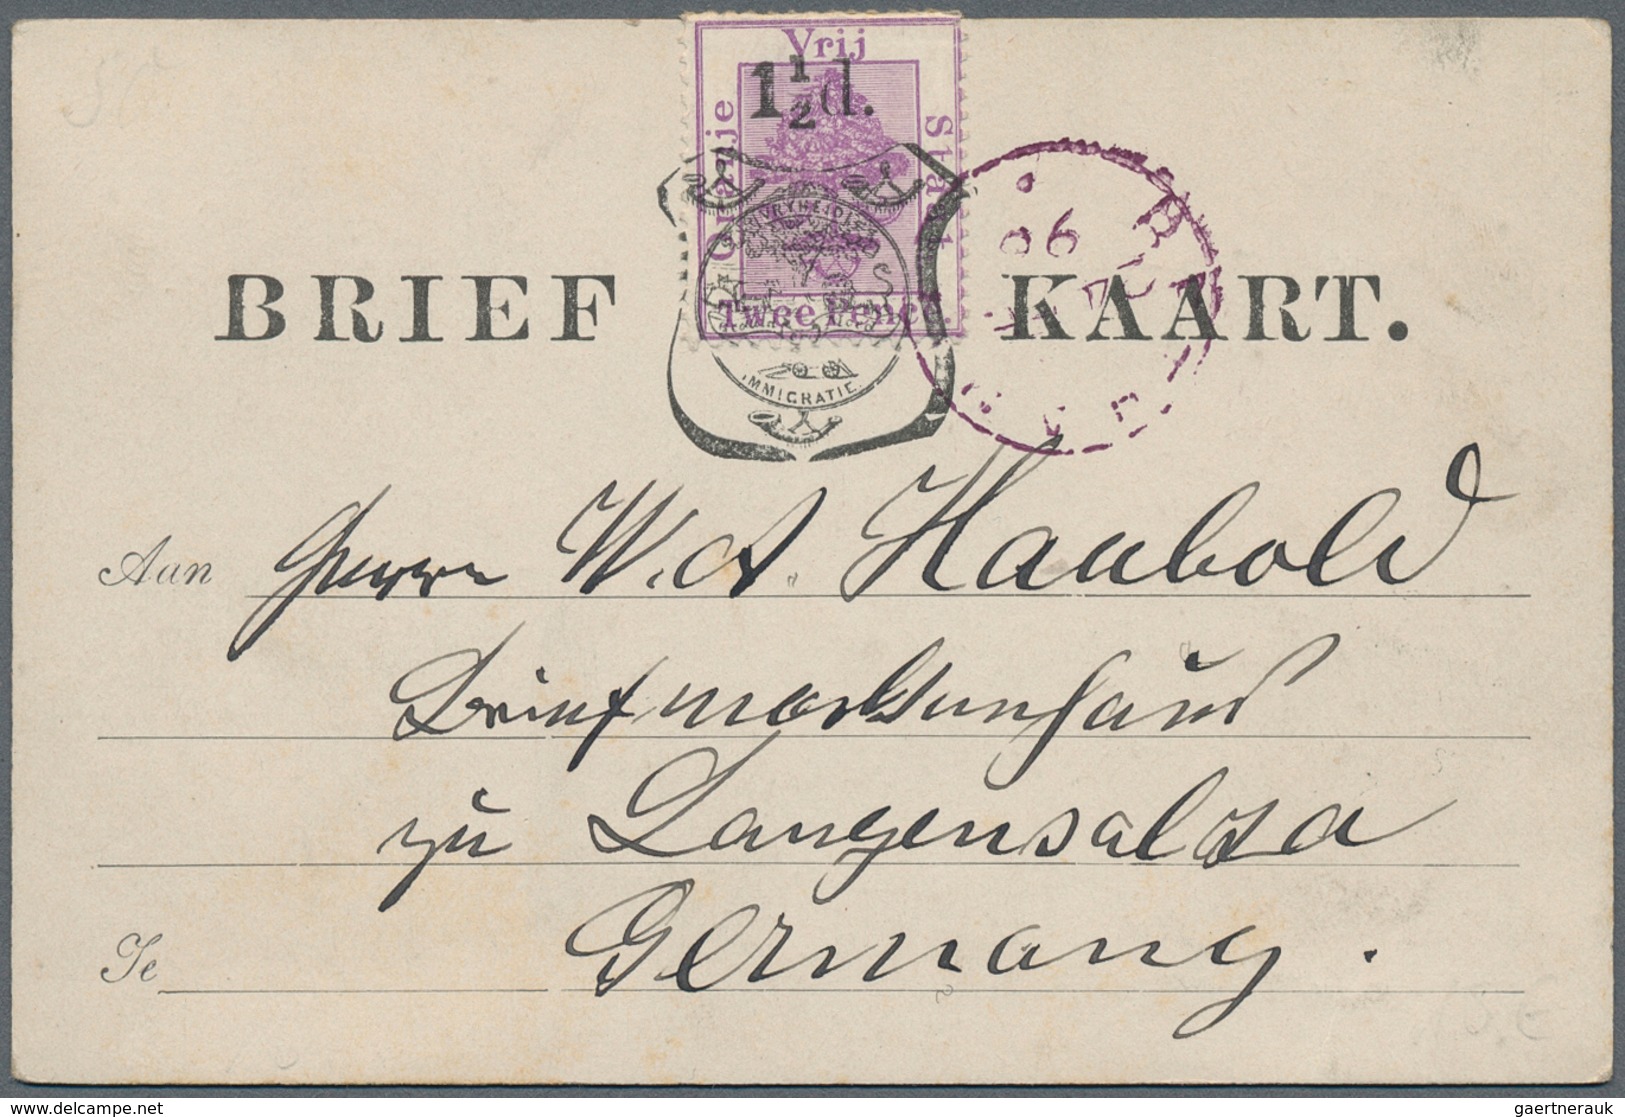 Vrij
1½d.
Oranje
Staat
Twee Pence
VRYHEID
IMMIGRATIE
06
BRIEF KAART.
Aan Herrn W. A. Haubold
Briefmarkenhaus
zu Langensalza
Te Germany.
delcampe.net
gaertnerauk